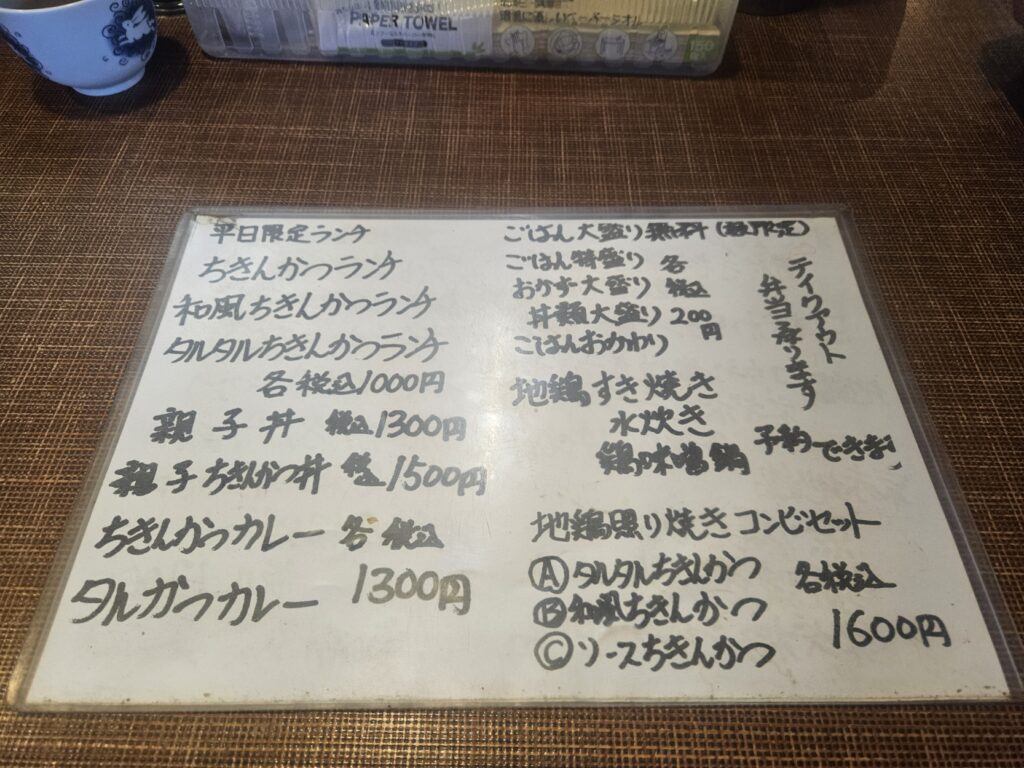 PAPER TOWEL
150
平日限定ランチ
ちきんかつランチ
和風ちきんかつランチ
タルタルちきんかつランチ
各税込1000円
親子丼 税込1300円
親子ちきんかつ丼 税込1500円
ちきんかつカレー 各税込
タルかつカレー 1300円
ごはん大盛り無料(数限定)
ごはん特盛り 各
おかず大盛り 税込
丼類大盛り 200円
ごはんおかわり
テイクアウト
弁当承ります
地鶏すき焼き
水炊き
鶏味噌鍋 予約できます
地鶏照り焼きコンビセット
Ⓐタルタルちきんかつ 各税込
Ⓑ和風ちきんかつ 1600円
Ⓒソースちきんかつ